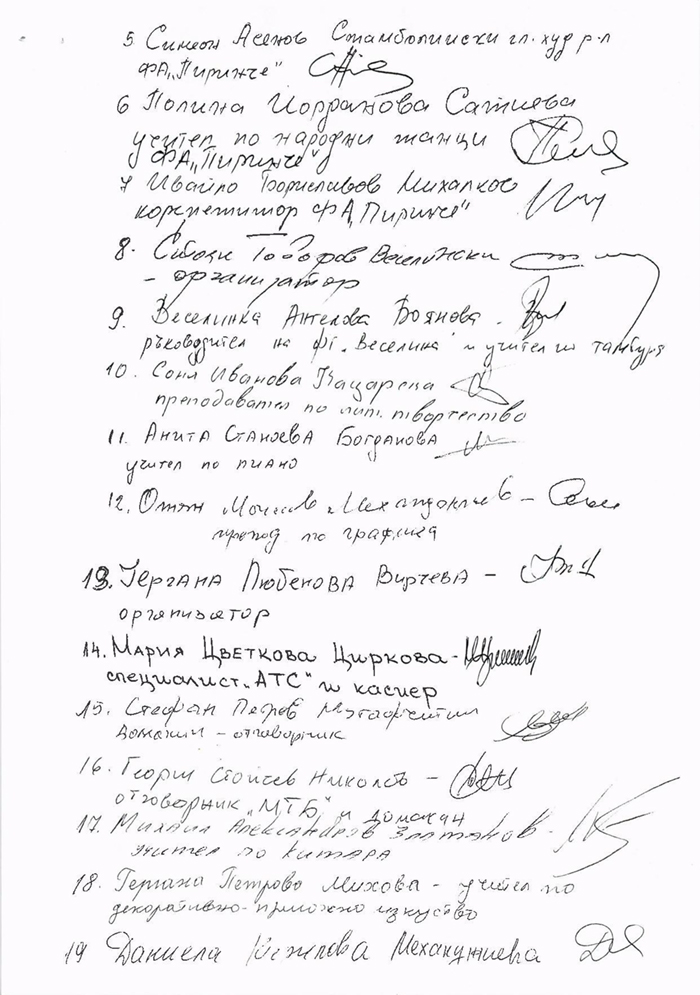 5 Симеон Асенов Стамболийски гл. худ р-л
ФА „Пиринче"
6 Полина Йорданова Сатиева
учител по народни танци
ФА „Пиринче"
7 Ивайло Бориславов Михалков
корепетитор ФА „Пиринче"
8. Стоян Тодоров Веселински
- организатор
9. Веселинка Ангелова Боянова -
ръководител на фг. „Веселина" и учител по тамбура
10. Соня Иванова Кацарска
преподавател по лит. творчество
11. Анита Станоева Богданова
учител по пиано
12.
препод по графика
13. Гергана Любенова Вирчева -
организатор
14. Мария Цветкова Циркова -
специалист „АТС" и касиер
15. Стефан Петров
домакин - отговорник
16. Георги Стойчев Николов -
отговорник „МТБ" и домакин
17. Михаил Александров Златанов -
учител по китара
18. Гергана Петрова Михова - учител по
декоративно-приложно изкуство
19 Даниела